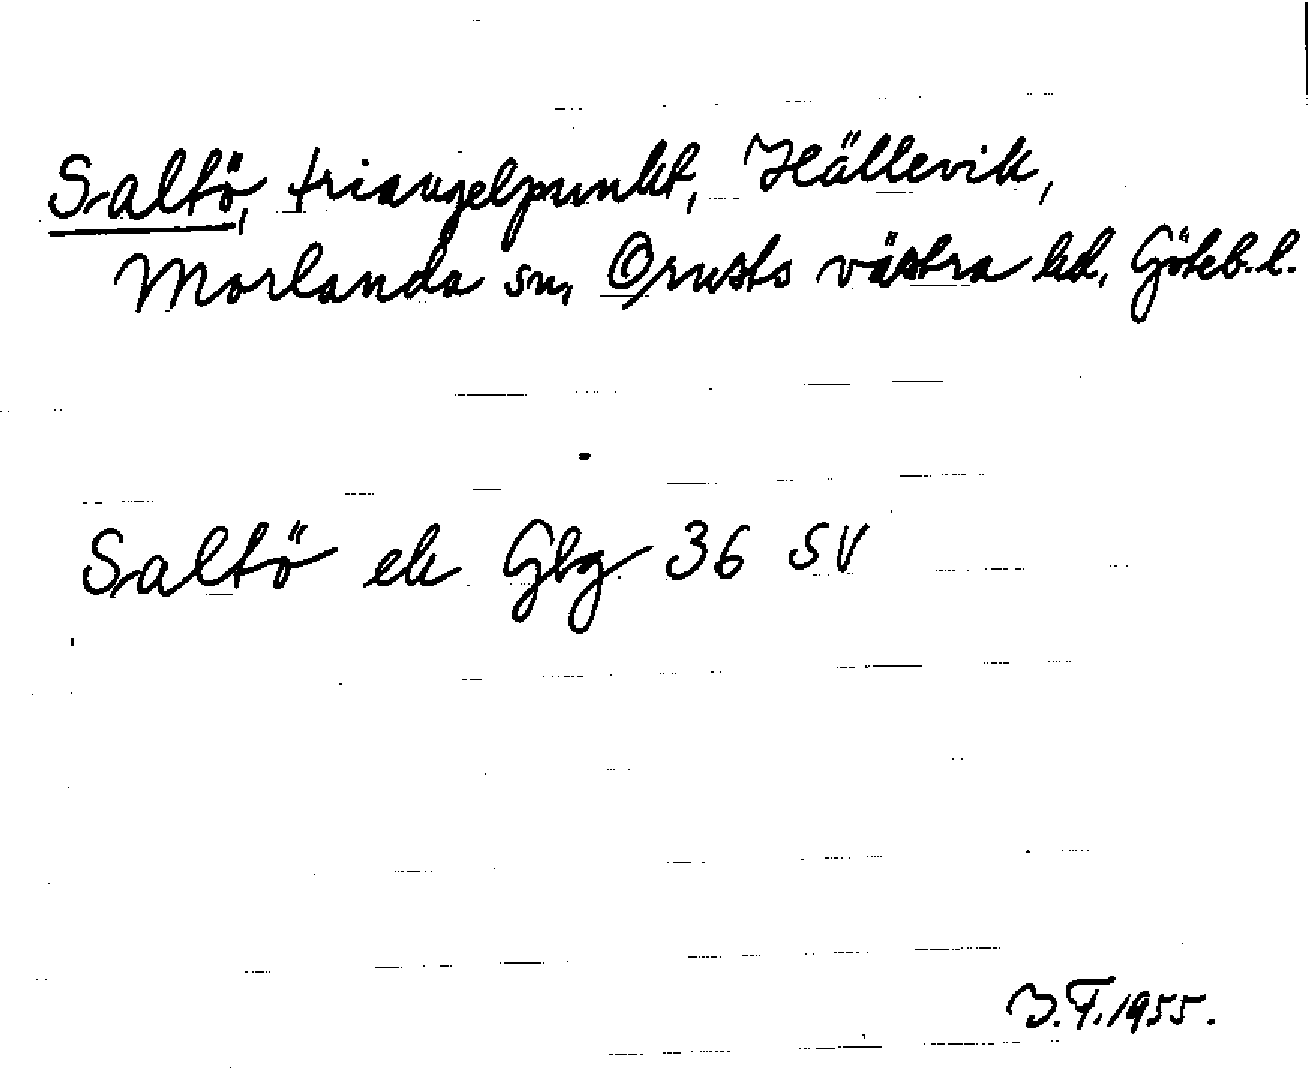 Saltö, triangelpunkt, Hällevik,
Morlanda sn, Orusts västra hd, Göteb. l.
Saltö ek Gbg 36 SV
I.F. 1955.